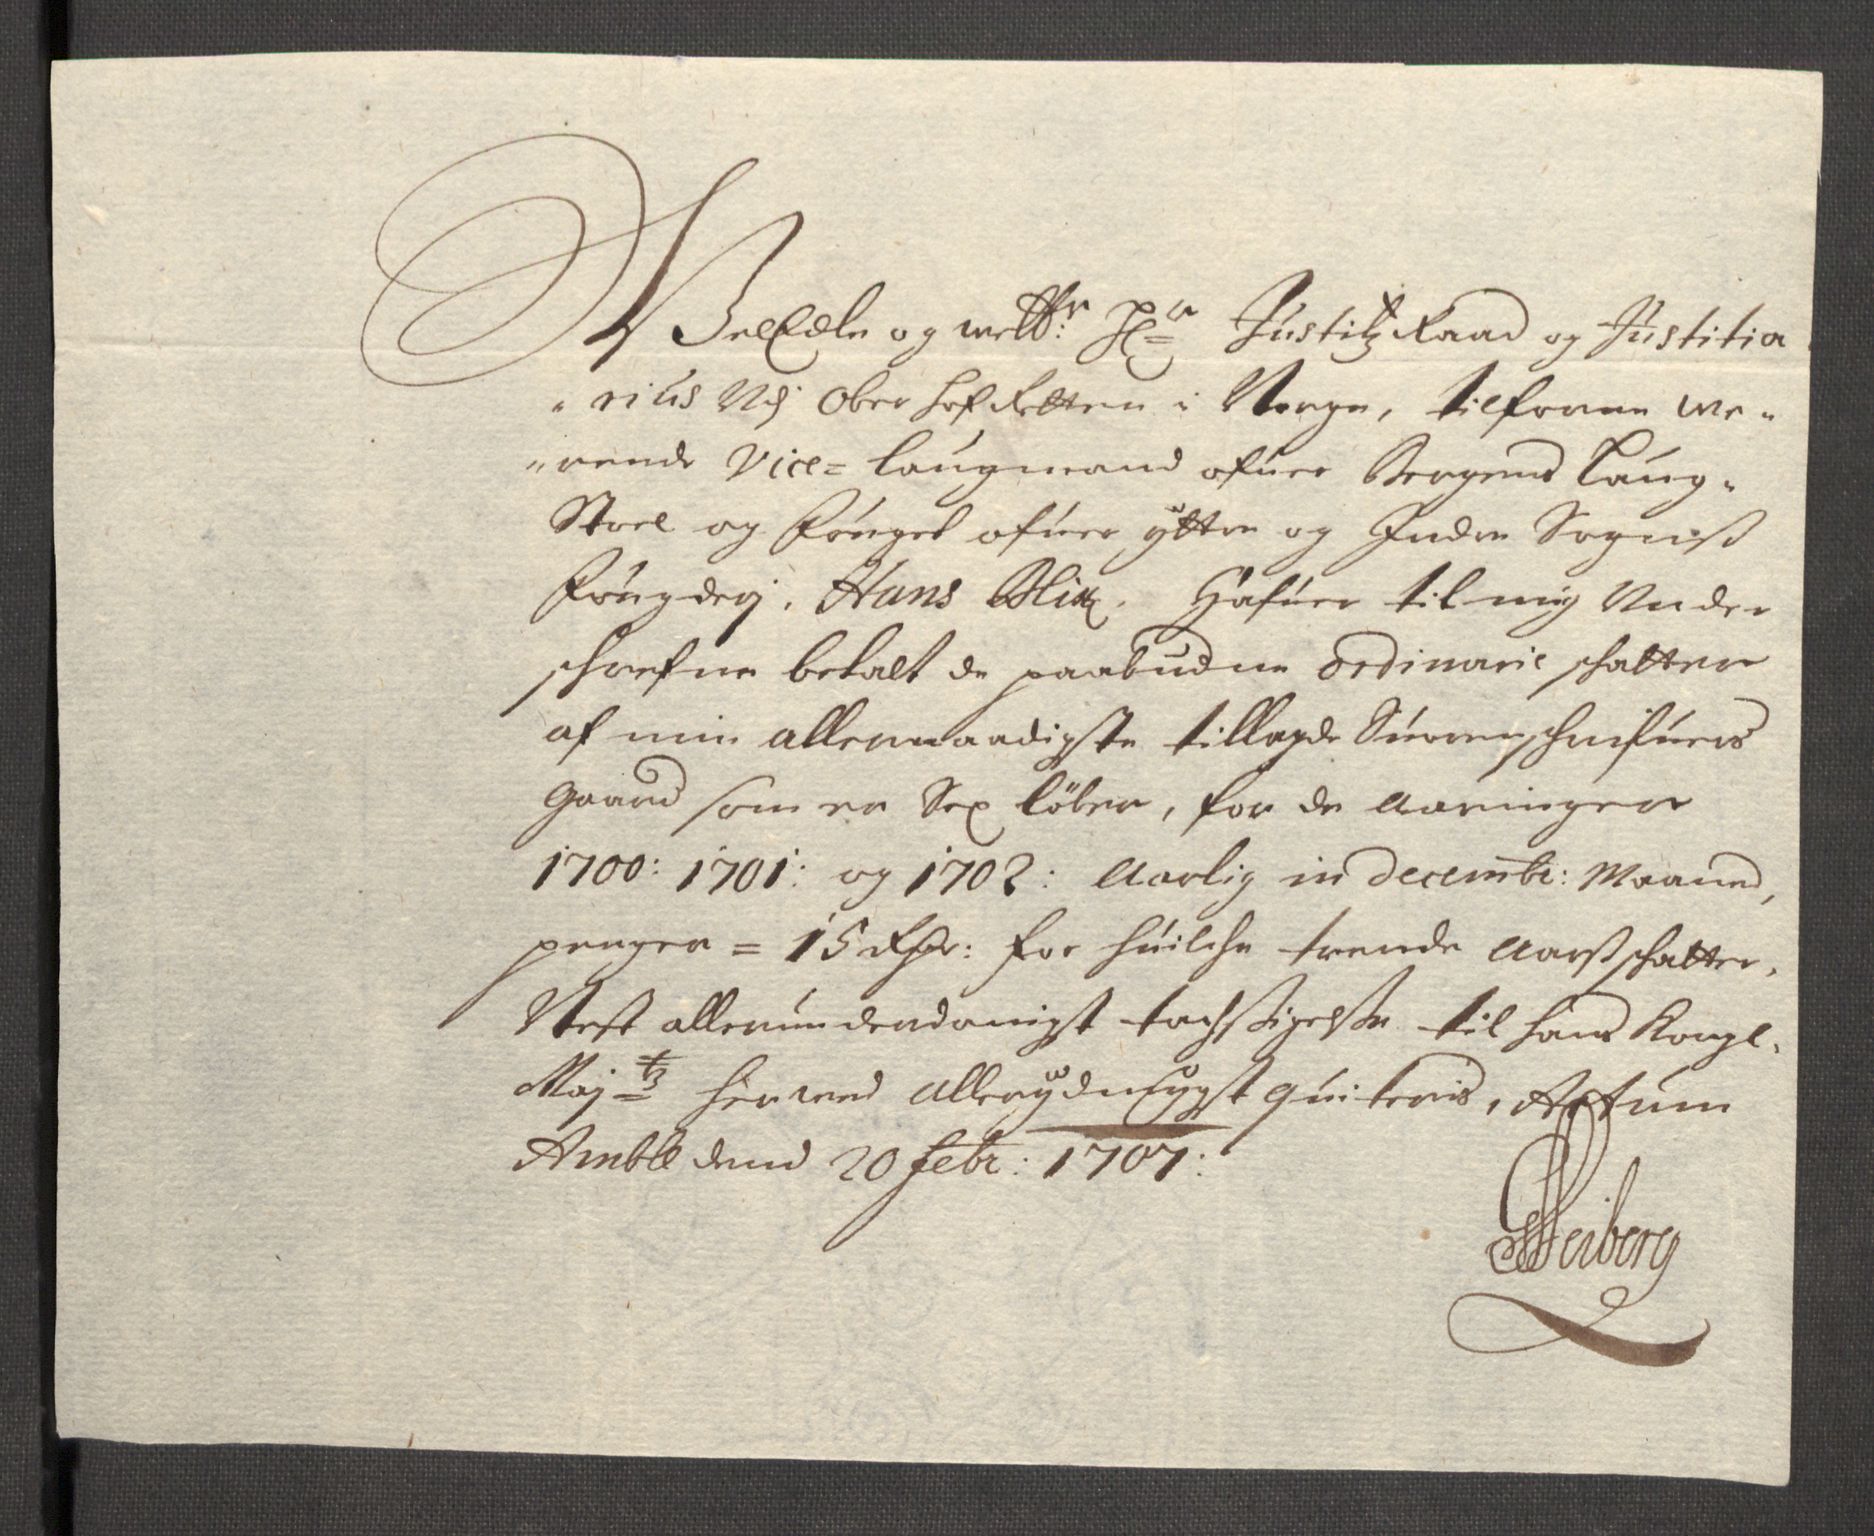 WelEdle og welb:r Hr= Justitz Raad og Justitia
"rius Vdj Ober hof Retten i Norge, tilforne we"
"rende Vice= laugmand ofuer Bergens Laug"
Stoel og fougel ofuer ÿttre og Indre Sogniß
fougderj, Hans Blix. Hafuer til mig Vnder
schrefne betalt de paabudne Ordinarie schatter
af min allernaadigste tillagde Sorenschrifuers
gaard som er Sex löber, for de aaringer
1700: 1701: og 1702: aarlig in decembr: Maaned,
penger = 15 Rdr: for huilche trende aarß schatter,
Nest allerunderdanigst tachsigelse til hans Kongl.
Majts herwed allerÿdmÿgst quiteris, Actum
Amble dend 20 febr: 1707:
GHeiberg